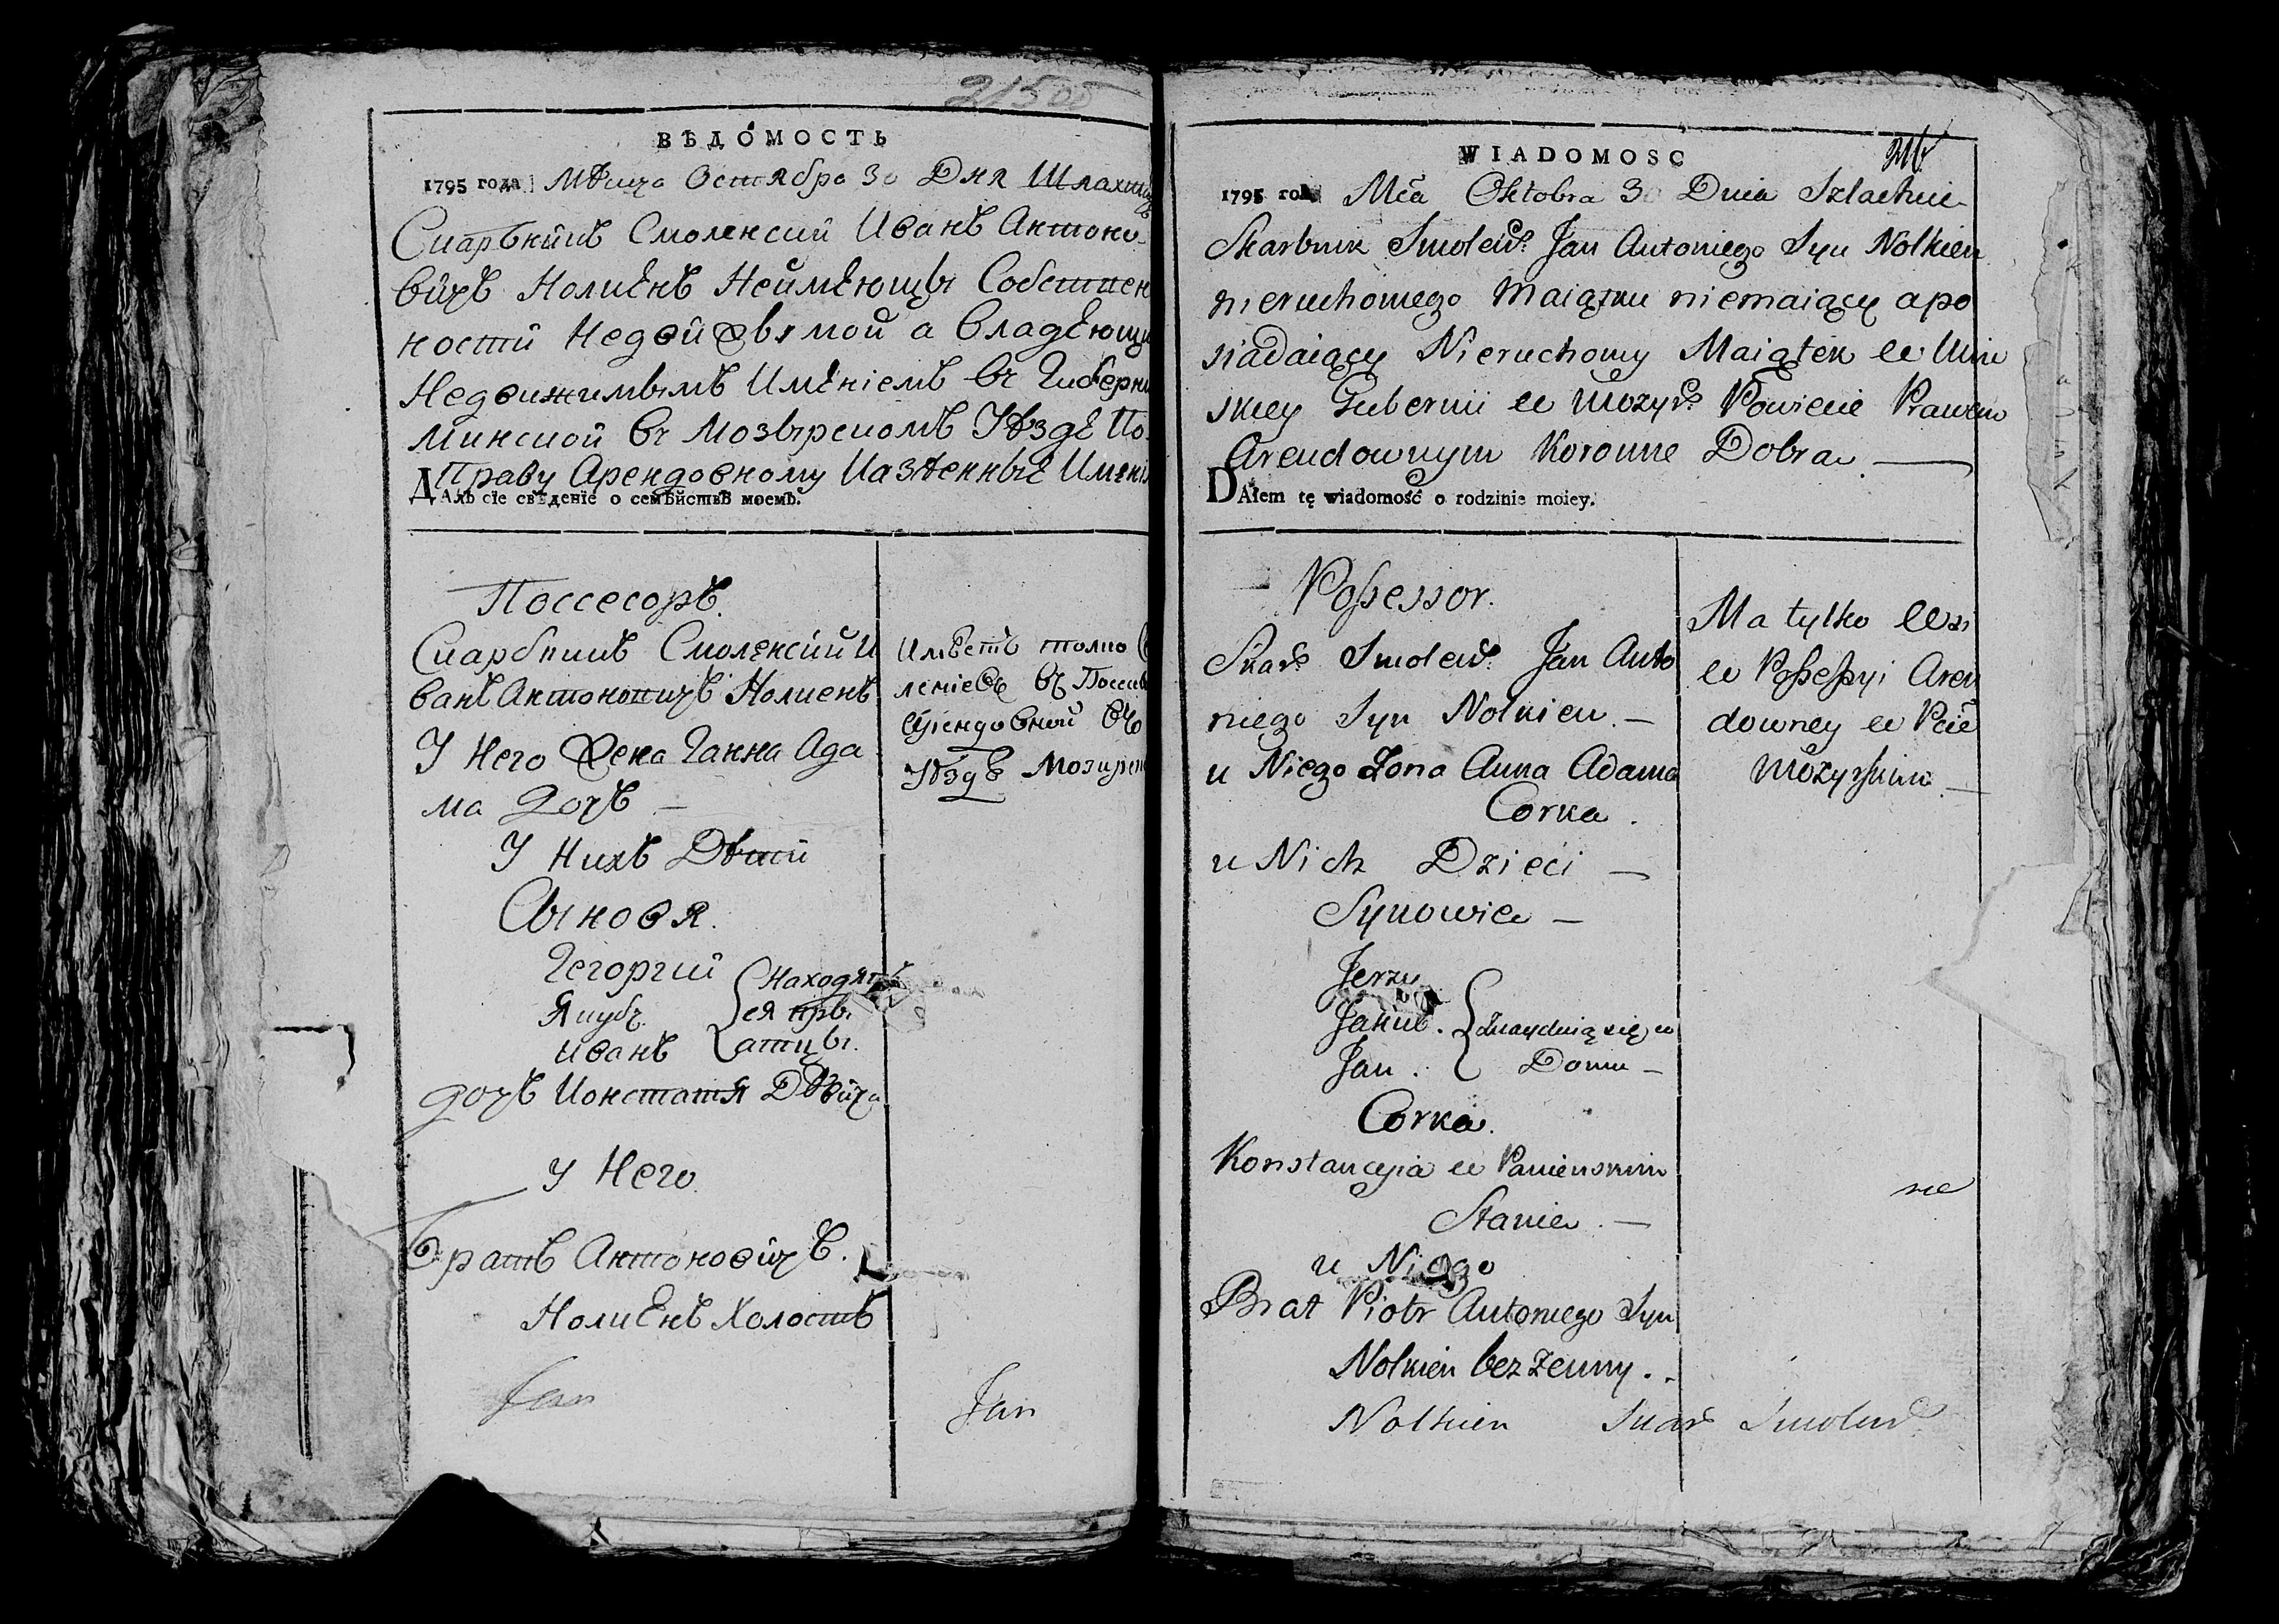 ВѢДОМОСТЬ
1795 года Мѣица Остября 30 Дня Шляхтиц
Скарбникъ Смоленскій Иванъ Антоно-
вичъ Нолкенъ Неимѣющы Собствен
ности Недвижымой а Владѣющи
Недвижимымъ Имѣніемъ въ Губерни
Минской въ Мозырскомъ Уѣздѣ По
Праву Арендовному Казѣнные Имѣнія
ДАлъ сїе свѣденїе о семѣйствѣ моемъ.
Поссесоръ.
Скарбникъ Смоленскій И
ванъ Антоновичъ Нолкенъ
У Него Жена Ганна Ада
ма Дочъ —
У Нихъ Дѣти
Сыновя.
Гегоргий
Якубъ
Иванъ
Находят
ся при
атцы.
дочъ Констатія Дѣвица
У Него
Братъ Антоновичъ.
Нолкенъ Холостъ
Имѣетъ толко
въ Поссес
арендовной въ
Уѣздѣ Мозирск
Jan
Jan
WIADOMOSC
1795 год Mča Oktobra 30 Dnia Szlachcic
Skarbnik Smoleń: Jan Antoniego Syn Nolkien
nieruchomego Maiątku niemaiący a po
siadaiący Nieruchomy Maiątek w Miń
skiey Gubernii w Mozyrs: Powiecie Prawem
Arendownym Koronne Dobra —
DAłem tę wiadomość o rodzinie moiey.
Possessor.
Skar: Smoleń: Jan Anto
niego Syn Nolkien. —
u Niego Zona Anna Adama
Corka.
u Nich Dzieci —
Synowie —
Jerzy
Jakub.
Jan.
Znayduią się w
Domu —
Corka.
Konstancyia w Panienskim
Stanie. —
u Niego
Brat Piotr Antoniego Syn
Nolkien bezzenny.
Nolkien Skar Smolen
Ma tylko Wsi
w Possessyi Aren
downey w Pcie
Mozyrskim —